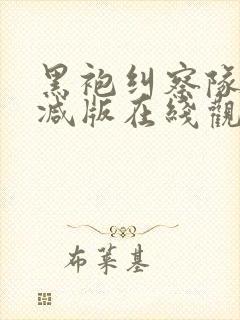 黑袍纠察队
减版在线觀
布莱基